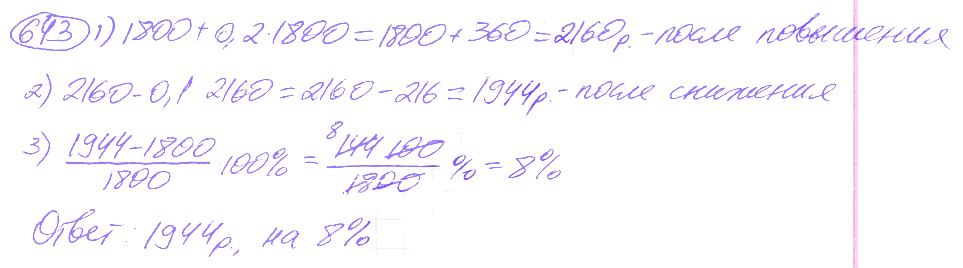 643 1) 1800 + 0,2·1800 = 1800 + 360 = 2160 р. - после повышения
2) 2160 - 0,1 2160 = 2160 - 216 = 1944 р. - после снижения
3) (1944 - 1800)/1800 100% = 8 144 100/1800 % = 8%
Ответ: 1944 р., на 8%